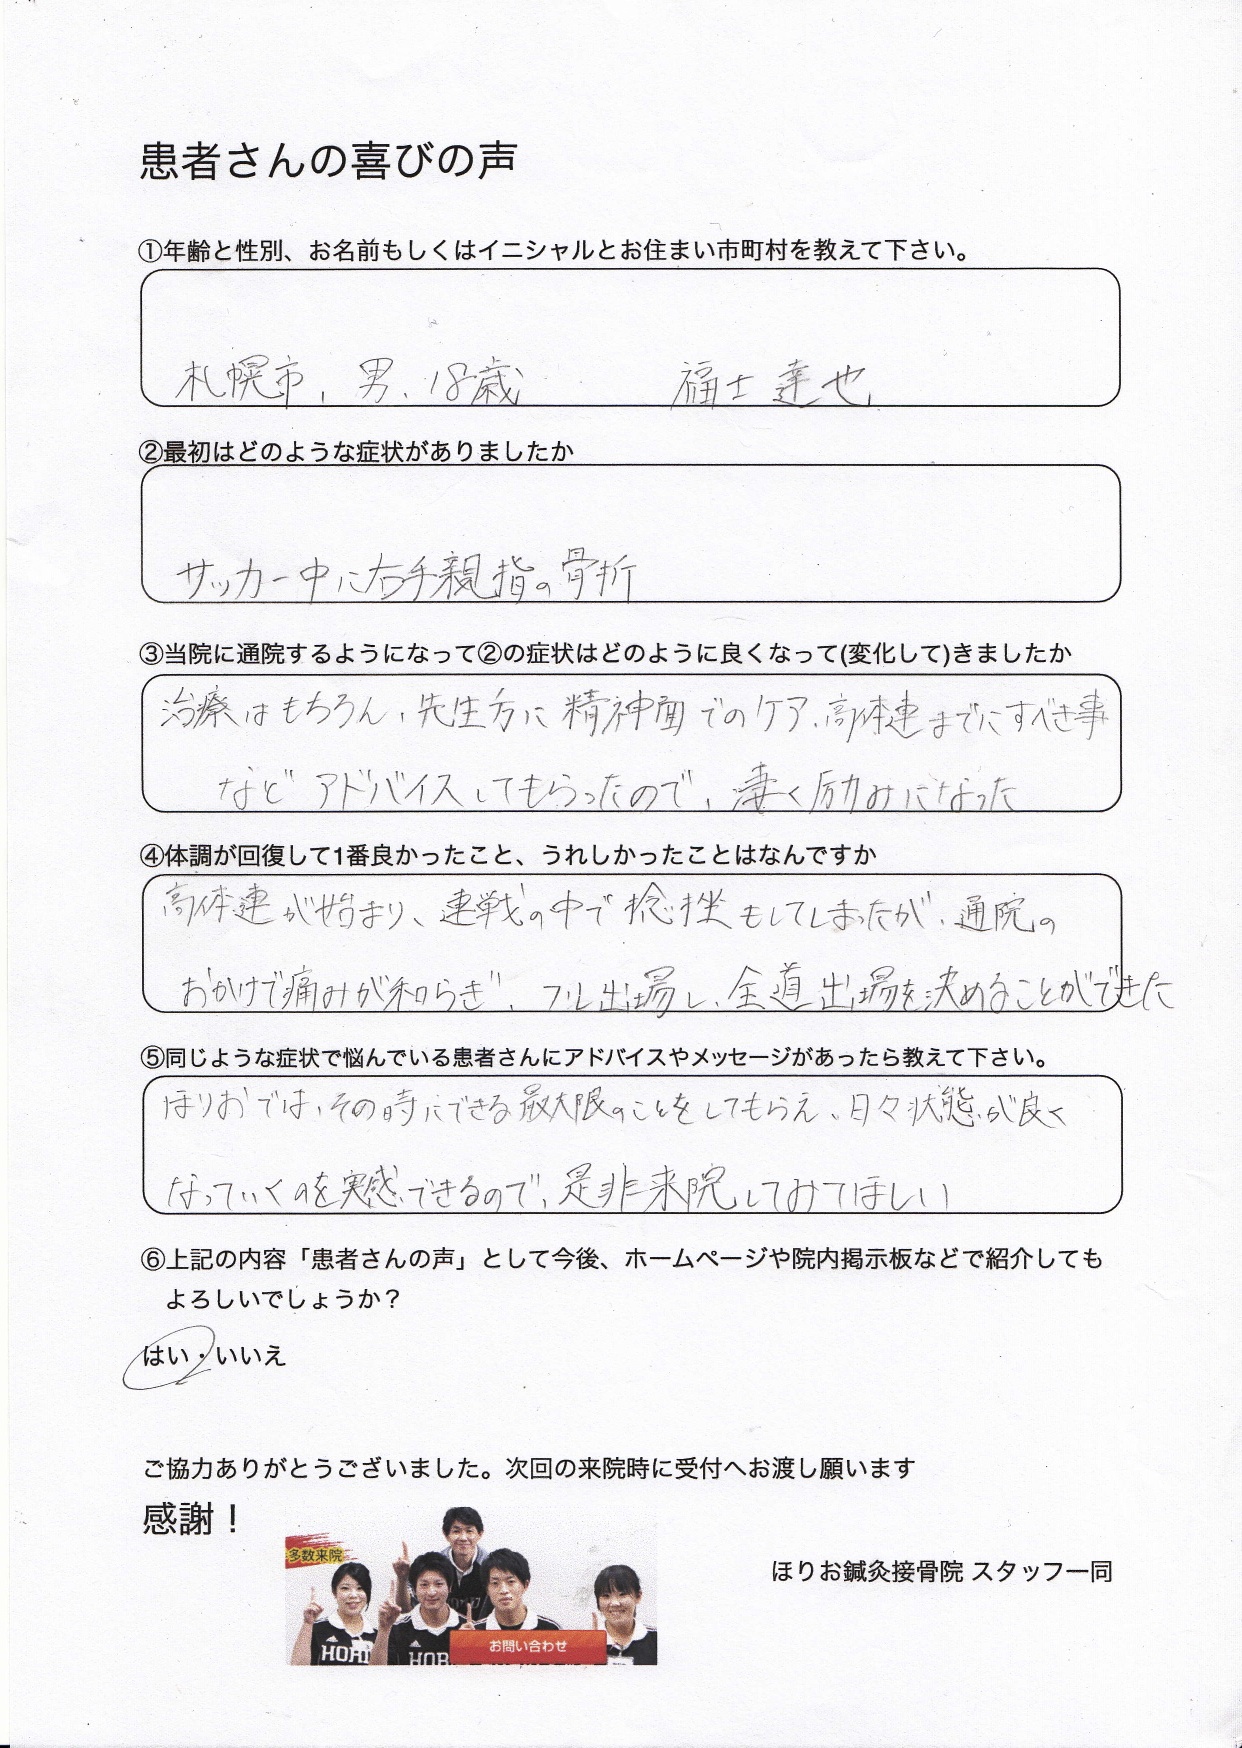 患者さんの喜びの声
①年齢と性別、お名前もしくはイニシャルとお住まい市町村を教えて下さい。
札幌市、男、18歳 福士達也
②最初はどのような症状がありましたか
サッカー中に右手親指の骨折
③当院に通院するようになって②の症状はどのように良くなって(変化して)きましたか
治療はもちろん、先生方に精神面でのケア、高体連までにすべき事
などアドバイスしてもらったので、凄く励みになった
④体調が回復して1番良かったこと、うれしかったことはなんですか
高体連が始まり、連戦の中で捻挫もしてしまったが、通院の
おかげで痛みが和らぎ、フル出場し、全道出場を決めることができた
⑤同じような症状で悩んでいる患者さんにアドバイスやメッセージがあったら教えて下さい。
ほりおでは、その時にできる最大限のことをしてもらえ、日々状態が良く
なっていくのを実感できるので、是非来院してみてほしい
⑥上記の内容「患者さんの声」として今後、ホームページや院内掲示板などで紹介しても
よろしいでしょうか？
はい・いいえ
ご協力ありがとうございました。次回の来院時に受付へお渡し願います
感謝！
多数来院
ほりお鍼灸接骨院 スタッフ一同
お問い合わせ